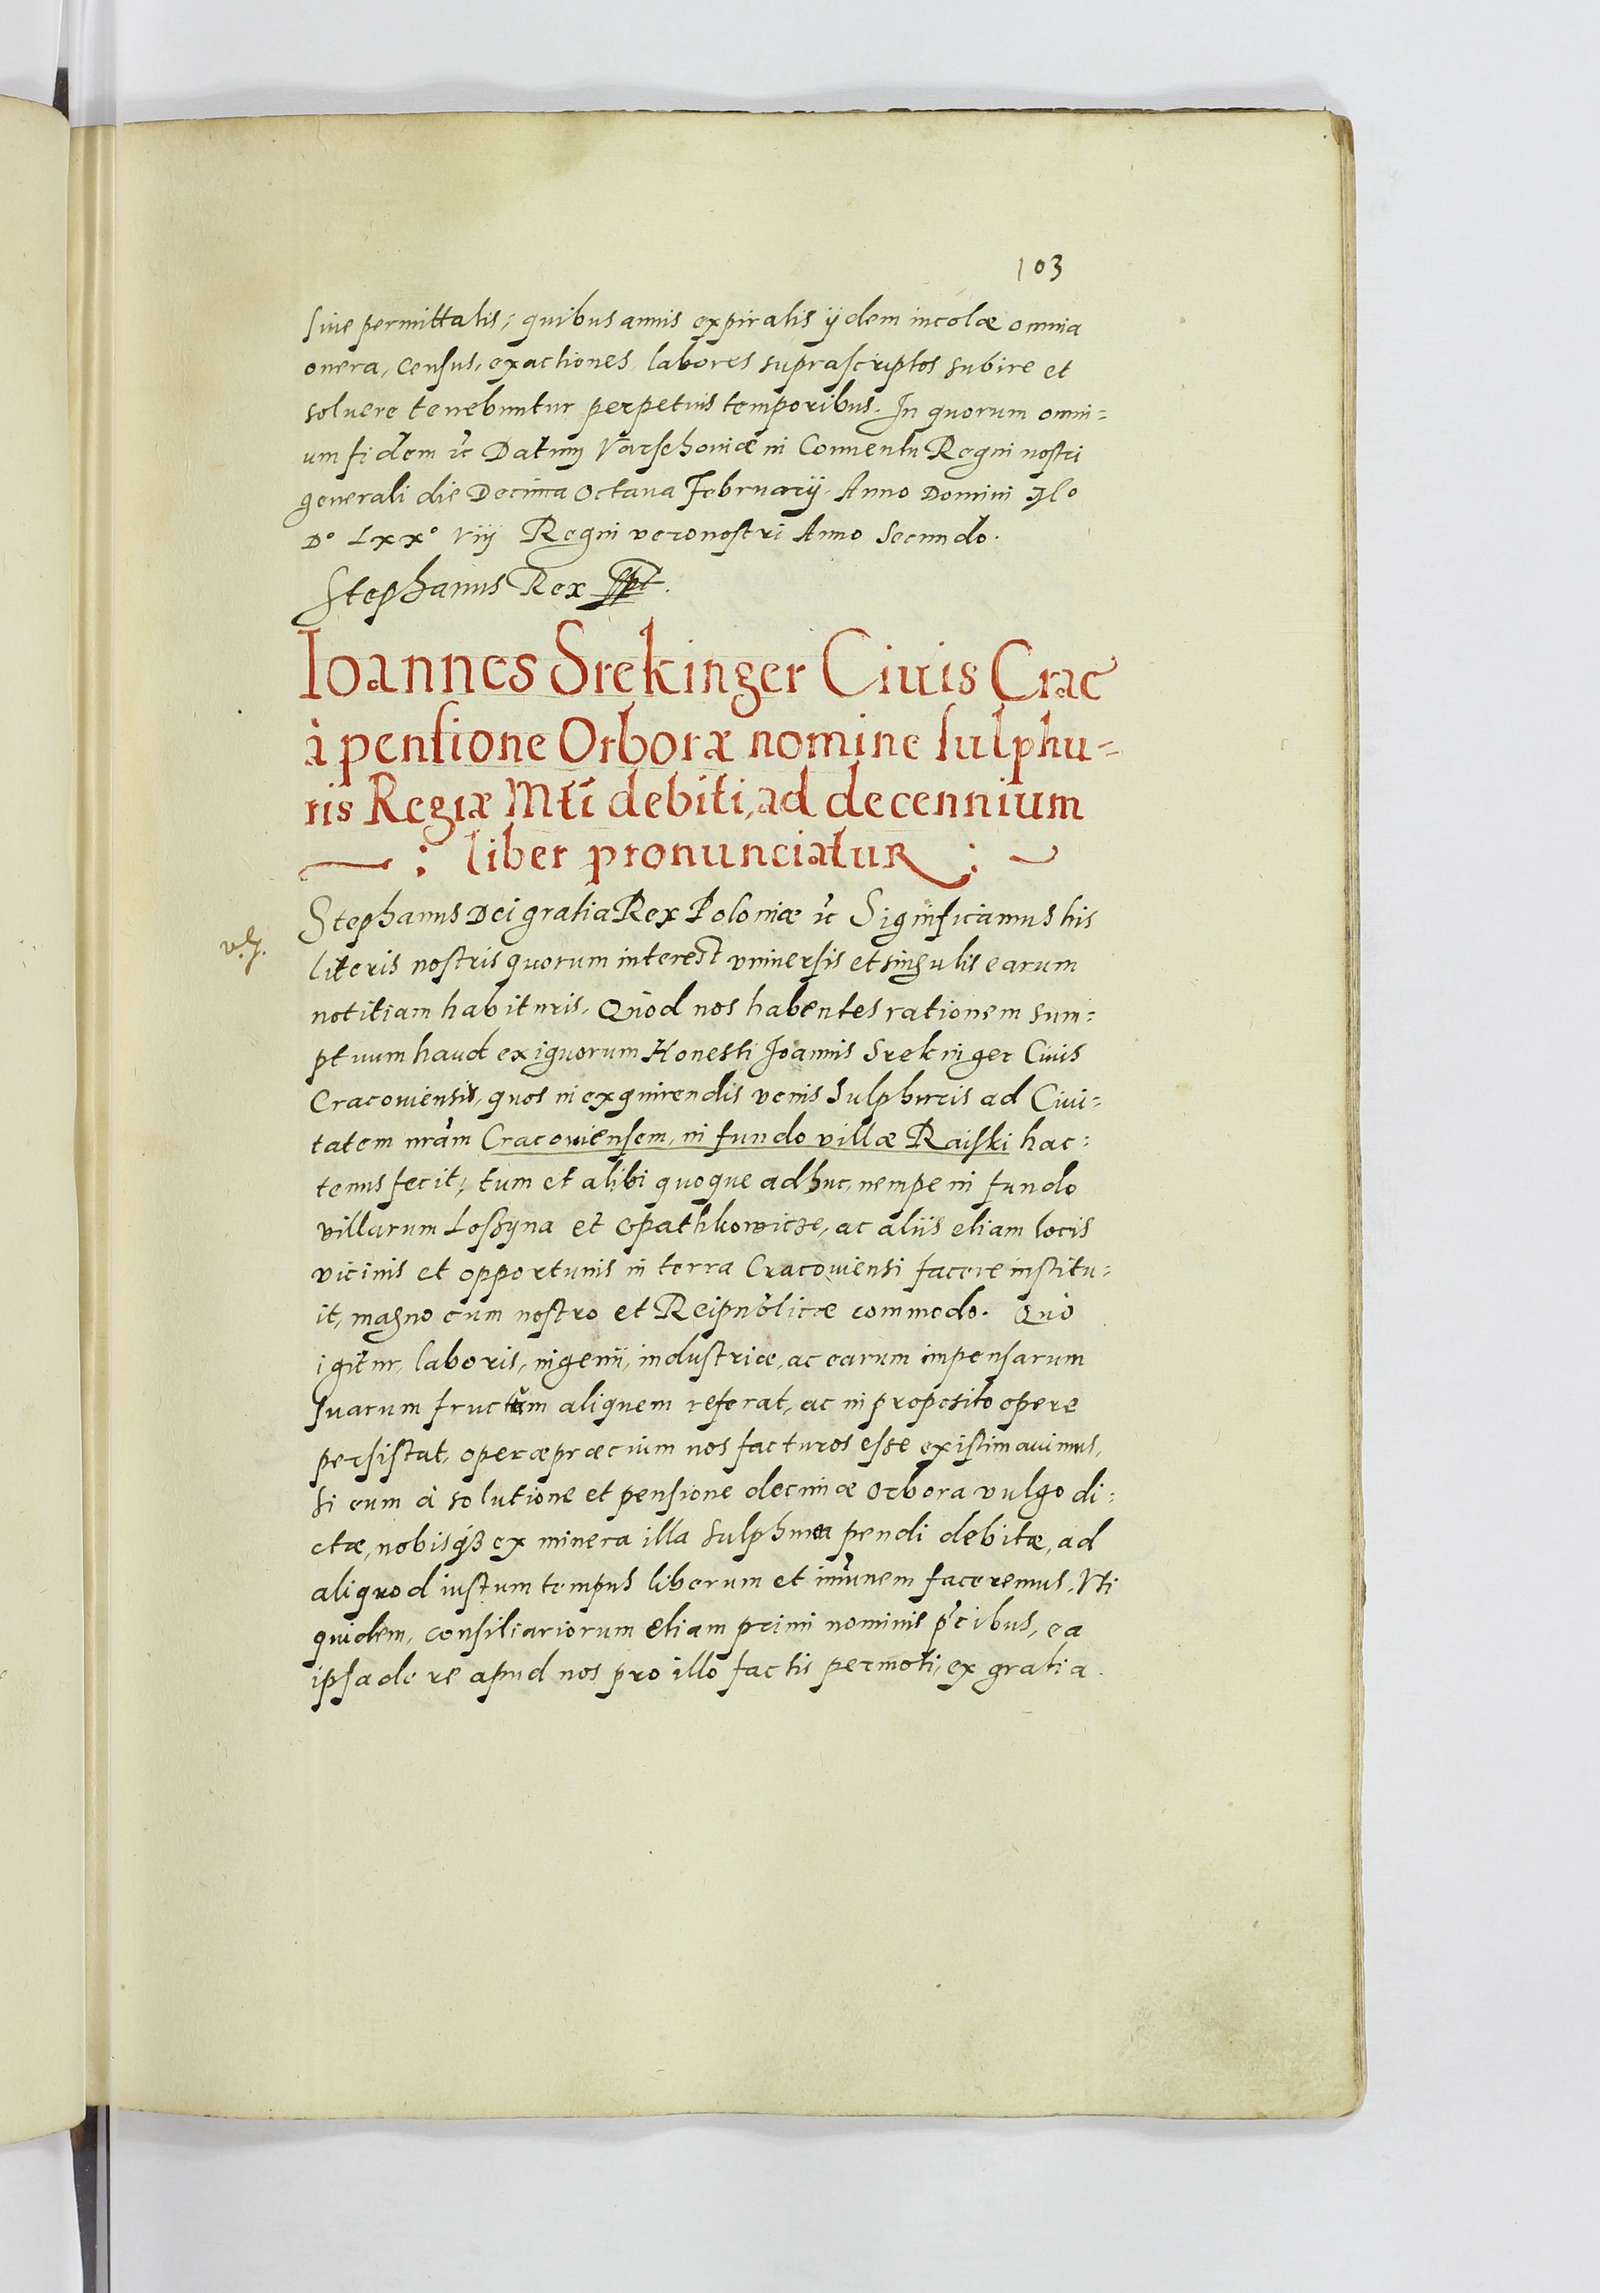 103
siue permittatis; quibus annis expiratis ijdem incolæ omnia
onera, census, exactiones, labores suprascriptos subire et
soluere tenebuntur perpetuis temporibus. In quorum omni=
um fidem ꝛc Datum Varschouiæ in Conuentu Regni nostri
generali die Decima Octaua Februarij. Anno Domini Mo
Do Lxxo Viij Regni vero nostri Anno Secundo.
Stephanus Rex
Ioannes Srekinger Ciuis Crac
à pensione Orboræ nomine sulphu=
ris Regiæ Mti debiti, ad decennium
: liber pronunciatur :
Stephanus Dei gratia Rex Poloniæ ꝛc Significamus his
literis nostris quorum interest vniuersis et singulis earum
notitiam habituris. Quòd nos habentes rationem sum=
ptuum haud exiguorum Honesti Joannis Srekinger Ciuis
Cracouiensis, quos in exquirendis venis Sulphuris ad Ciui=
tatem nram Cracouiensem, in fundo villæ Raiski hac=
tenus fecit, tum et alibi quoque adhuc, nempe in fundo
villarum Lossyna et Opathkowicze, ac aliis etiam locis
vicinis et opportunis in terra Cracouiensi facere institu=
it, magno cum nostro et Reipublicæ commodo. Quò
igitur, laboris, ingenii, industriæ, ac earum impensarum
suarum fructum aliquem referat, ac in proposito opere
persistat, operæpræcium nos facturos esse existimauimus,
si eum à solutione et pensione decimæ Orbora vulgo di=
ctæ, nobisqꝫ ex minera illa sulphurea pendi debitæ, ad
aliquod iustum tempus liberum et imunem faceremus. Vti
quidem, consiliariorum etiam primi nominis pcibus, ea
ipsa de re apud nos pro illo factis permoti, ex gratia